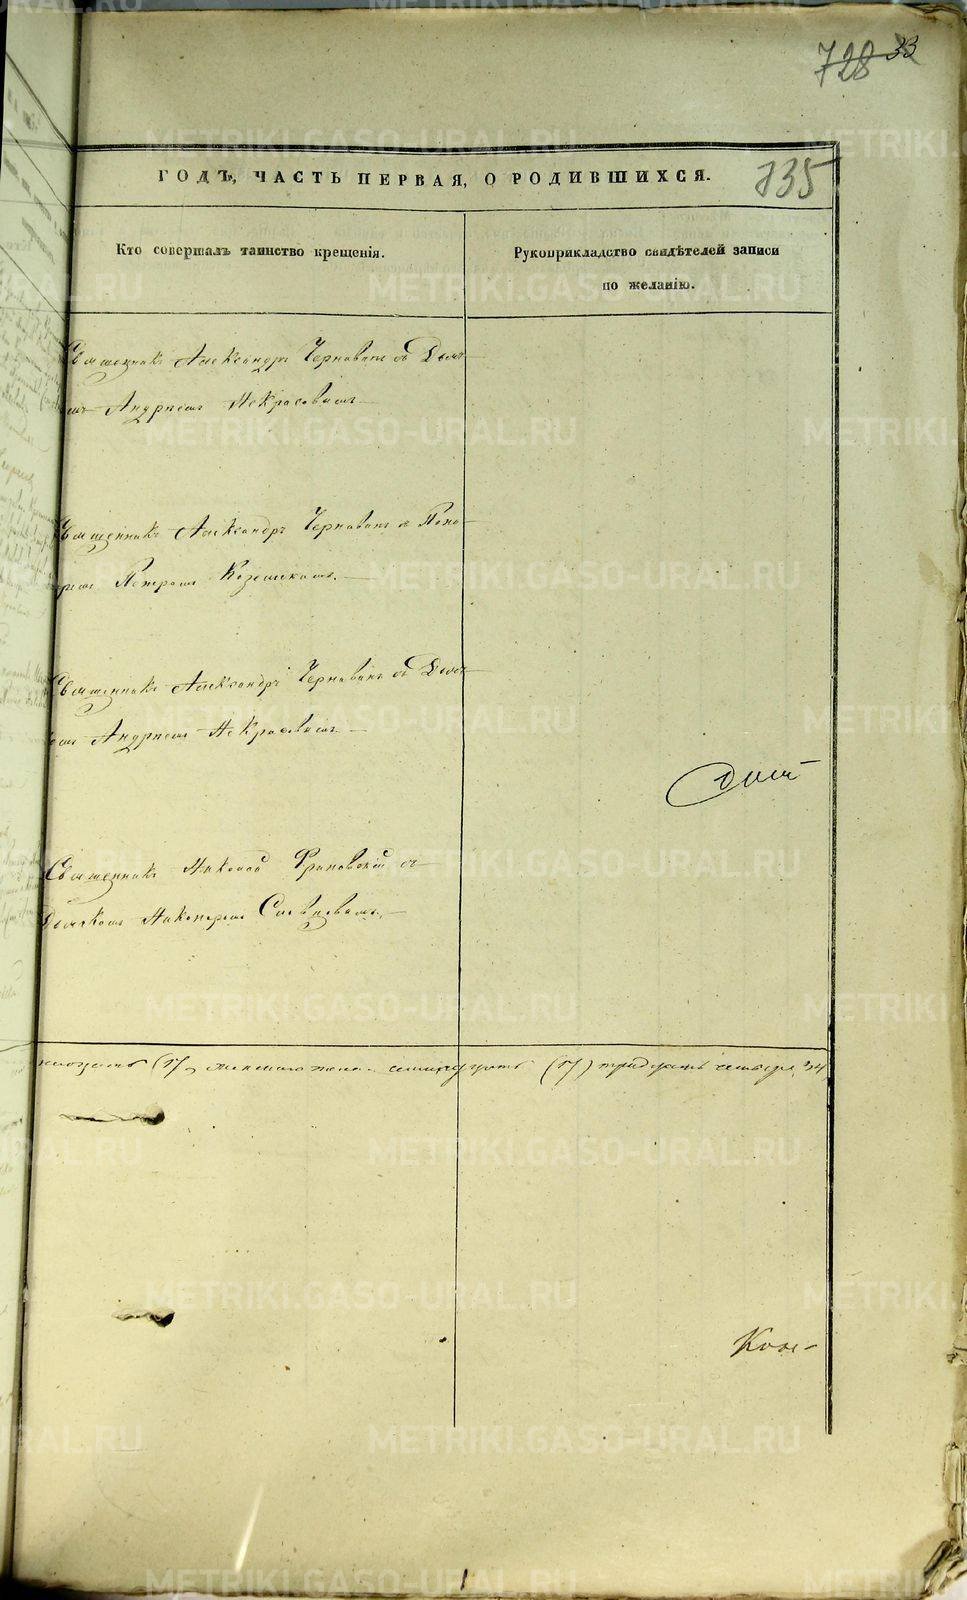 728 33
735
ГОДЪ, ЧАСТЬ ПЕРВАЯ, О РОДИВШИХСЯ.
Кто совершалъ таинство крещенія.
Рукоприкладство свидѣтелей записи
по желанію.
Священникъ Александръ Чернавинъ съ Дьяч-
комъ Андреемъ Некрасовымъ.—
Священникъ Александръ Чернавинъ съ Поно-
маремъ Петромъ
Священникъ Александръ Чернавинъ съ Дьяч-
комъ Андреемъ Некрасовымъ.—
Священникъ Николай съ
Дьячкомъ Никаноромъ
(17) женскаго пола семнадцать (17) тридцать четыре 34
METRIKI.GASO-URAL.RU